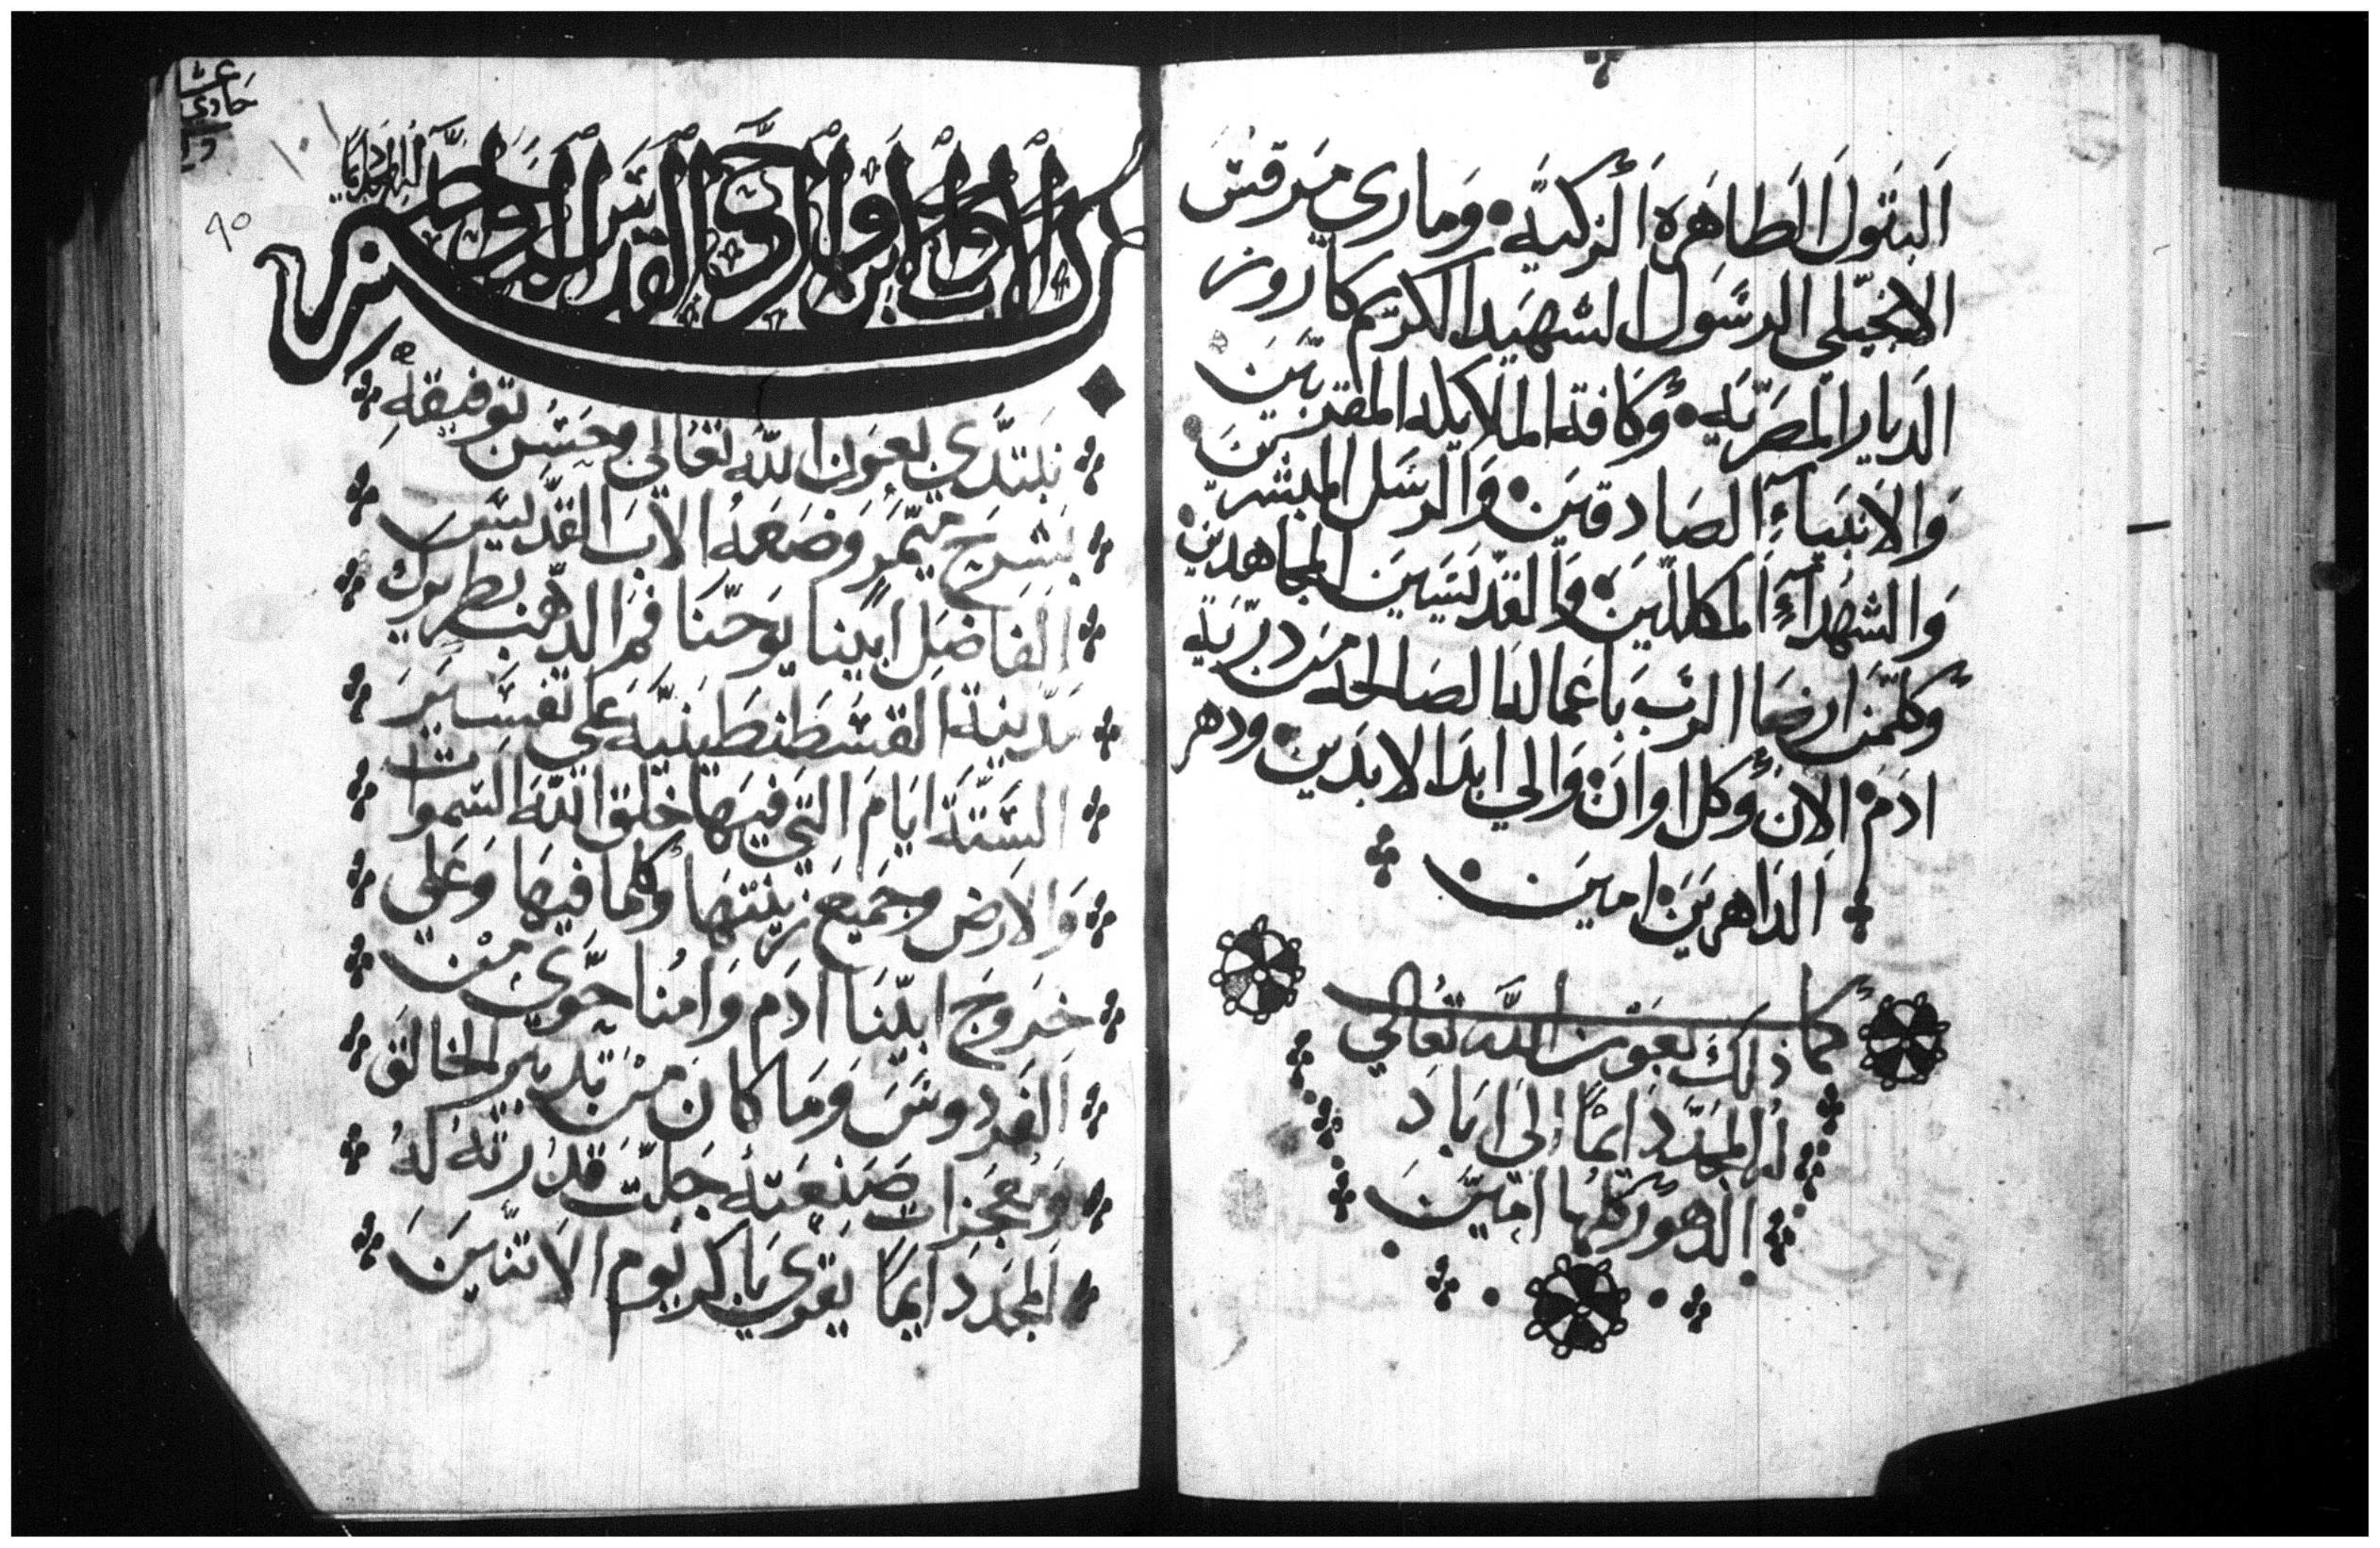 البتول الطاهره الزكيه وماري مرقس
الانجيلي الرسول الشهيد الكريم كاروز
الديار المصريه وكافة الملايكه المقربين
والانبياء الصادقين والرسل المبشرين
والشهداء المكللين والقديسين المجاهدين
وكلمن ارضا الرب باعماله الصالحه من دريه
ادم الان وكل اوان والي ابد الابدين ودهر
الداهرين امين
كما ذلك بعون الله تعالي
له المجد دايما الى اباد
الدهور كلها امين
عشر
حادي
٩٥
بسم الاب والابن والروح القدس الاله الواحد
له المجد دايما
نبتدي بعون الله تعالى وحسن توفيقه
بشرح ميمر وضعه الاب القديس
الفاضل ابينا يوحنا فم الدهب بطريرك
مدينة القسطنطينيه على تفسير
الستة ايام التي فيها خلق الله السموات
والارض وجميع زينتها وكلما فيها وعلي
خروج ابينا ادم وامنا حوي من
الفردوس وما كان من تدبير الخالق
ومعجزات صنعته جلت قدرته له
المجد دايما يقري باكر يوم الاتنين